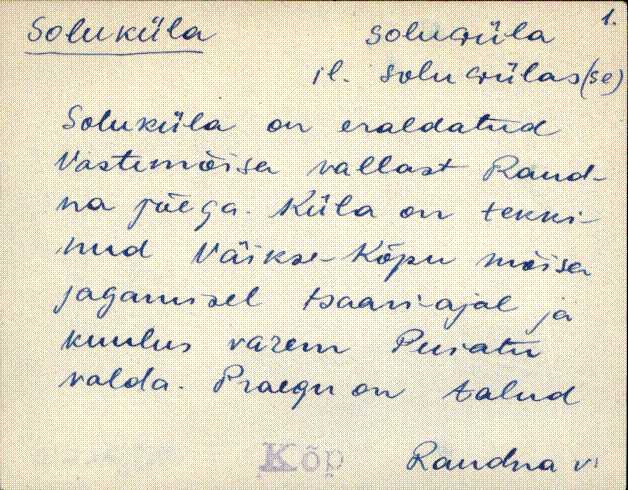 1.
Soluküla soluɢüla
il. soluɢülas(se)
Soluküla on eraldatud
Vastemõisa vallast Raud-
na jõega. Küla on tekki-
nud Väikse-Kõpu mõisa
jagamisel tsaari-ajal ja
kuulus varem Puiatu
valda. Praegu on talud
Kõp Raudna v.